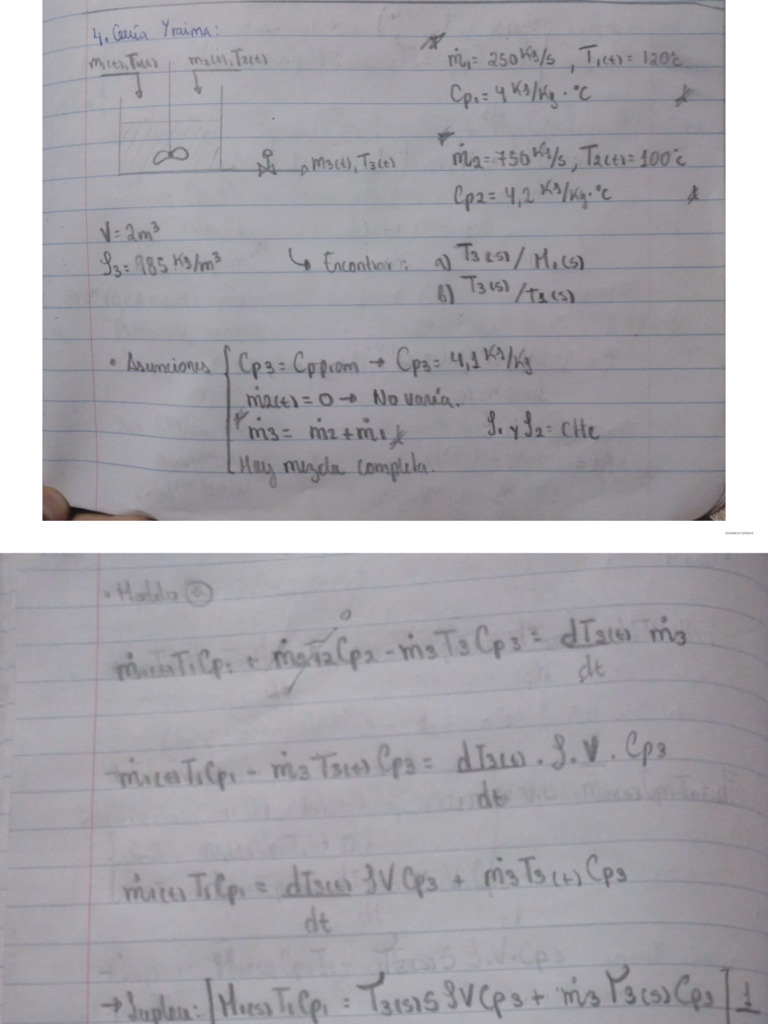 4. Guía Yraima:
m1(t), T1(t) m2(t), T2(t)
ṁ1 = 250 Kg/s , T1(t) = 120°c
Cp1 = 4 KJ/Kg·°C
m3(t), T3(t)
ṁ2 = 750 Kg/s ; T2(t) = 100°c
Cp2 = 4,2 KJ/Kg·°C
V = 2m³
ρ3 = 985 Kg/m³ ↳ Encontrar: a) T3(s) / M1(s)
b) T3(s) / T2(s)
• Asunciones { Cp3 = Cpprom → Cp3 = 4,1 KJ/Kg
ṁ2(t) = 0 → No varía.
ṁ3 = ṁ2 + ṁ1 ρ1 y ρ2 = Ctte
Hay mezcla completa.
• Modelo ⓐ
ṁ1(t) T1 Cp1 + ṁ2 T2 Cp2 - ṁ3 T3 Cp3 = dT3(t)/dt ṁ3
0
ṁ1(t) T1 Cp1 - ṁ3 T3(t) Cp3 = dT3(t)/dt . ρ. V. Cp3
ṁ1(t) T1 Cp1 = dT3(t)/dt ρV Cp3 + ṁ3 T3(t) Cp3
→ Laplace: [M1(s) T1 Cp1 = T3(s) s ρV Cp3 + ṁ3 T3(s) Cp3] 1